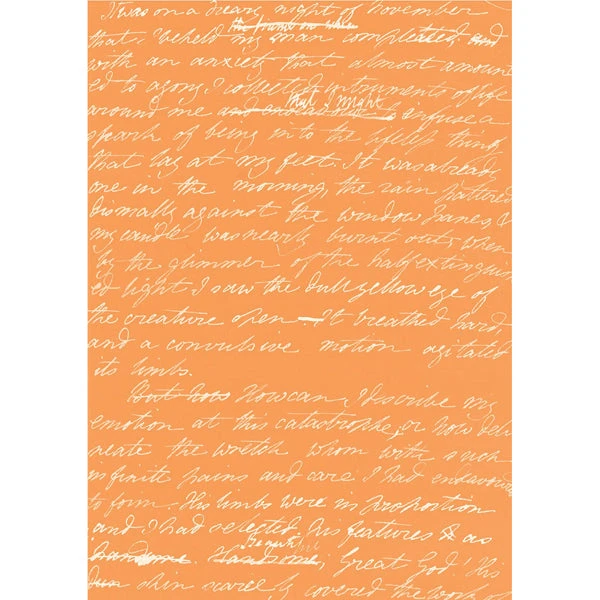 It was on a dreary night of November
the frame on whic
that I beheld my man compleated, and
with an anxiety that almost amount
ed to agony, I collected instruments of life
that I might
around me and endeavour to infuse a
spark of being into the lifeless thing
that lay at my feet. It was already
one in the morning, the rain pattered
dismally against the window panes, &
my candle was nearly burnt out, when
by the glimmer of the half extinguish
ed light I saw the dull yellow eye of
the creature open — It breathed hard,
and a convulsive motion agitated
its limbs.
But how How can I describe my
emotion at this catastrophe, or how deli
neate the wretch whom with such
infinite pains and care I had endeavour
to form. His limbs were in proportion
and I had selected his features & as
Beautiful
handsome. Handsome; Great God! His
dun skin scarcely covered the work of